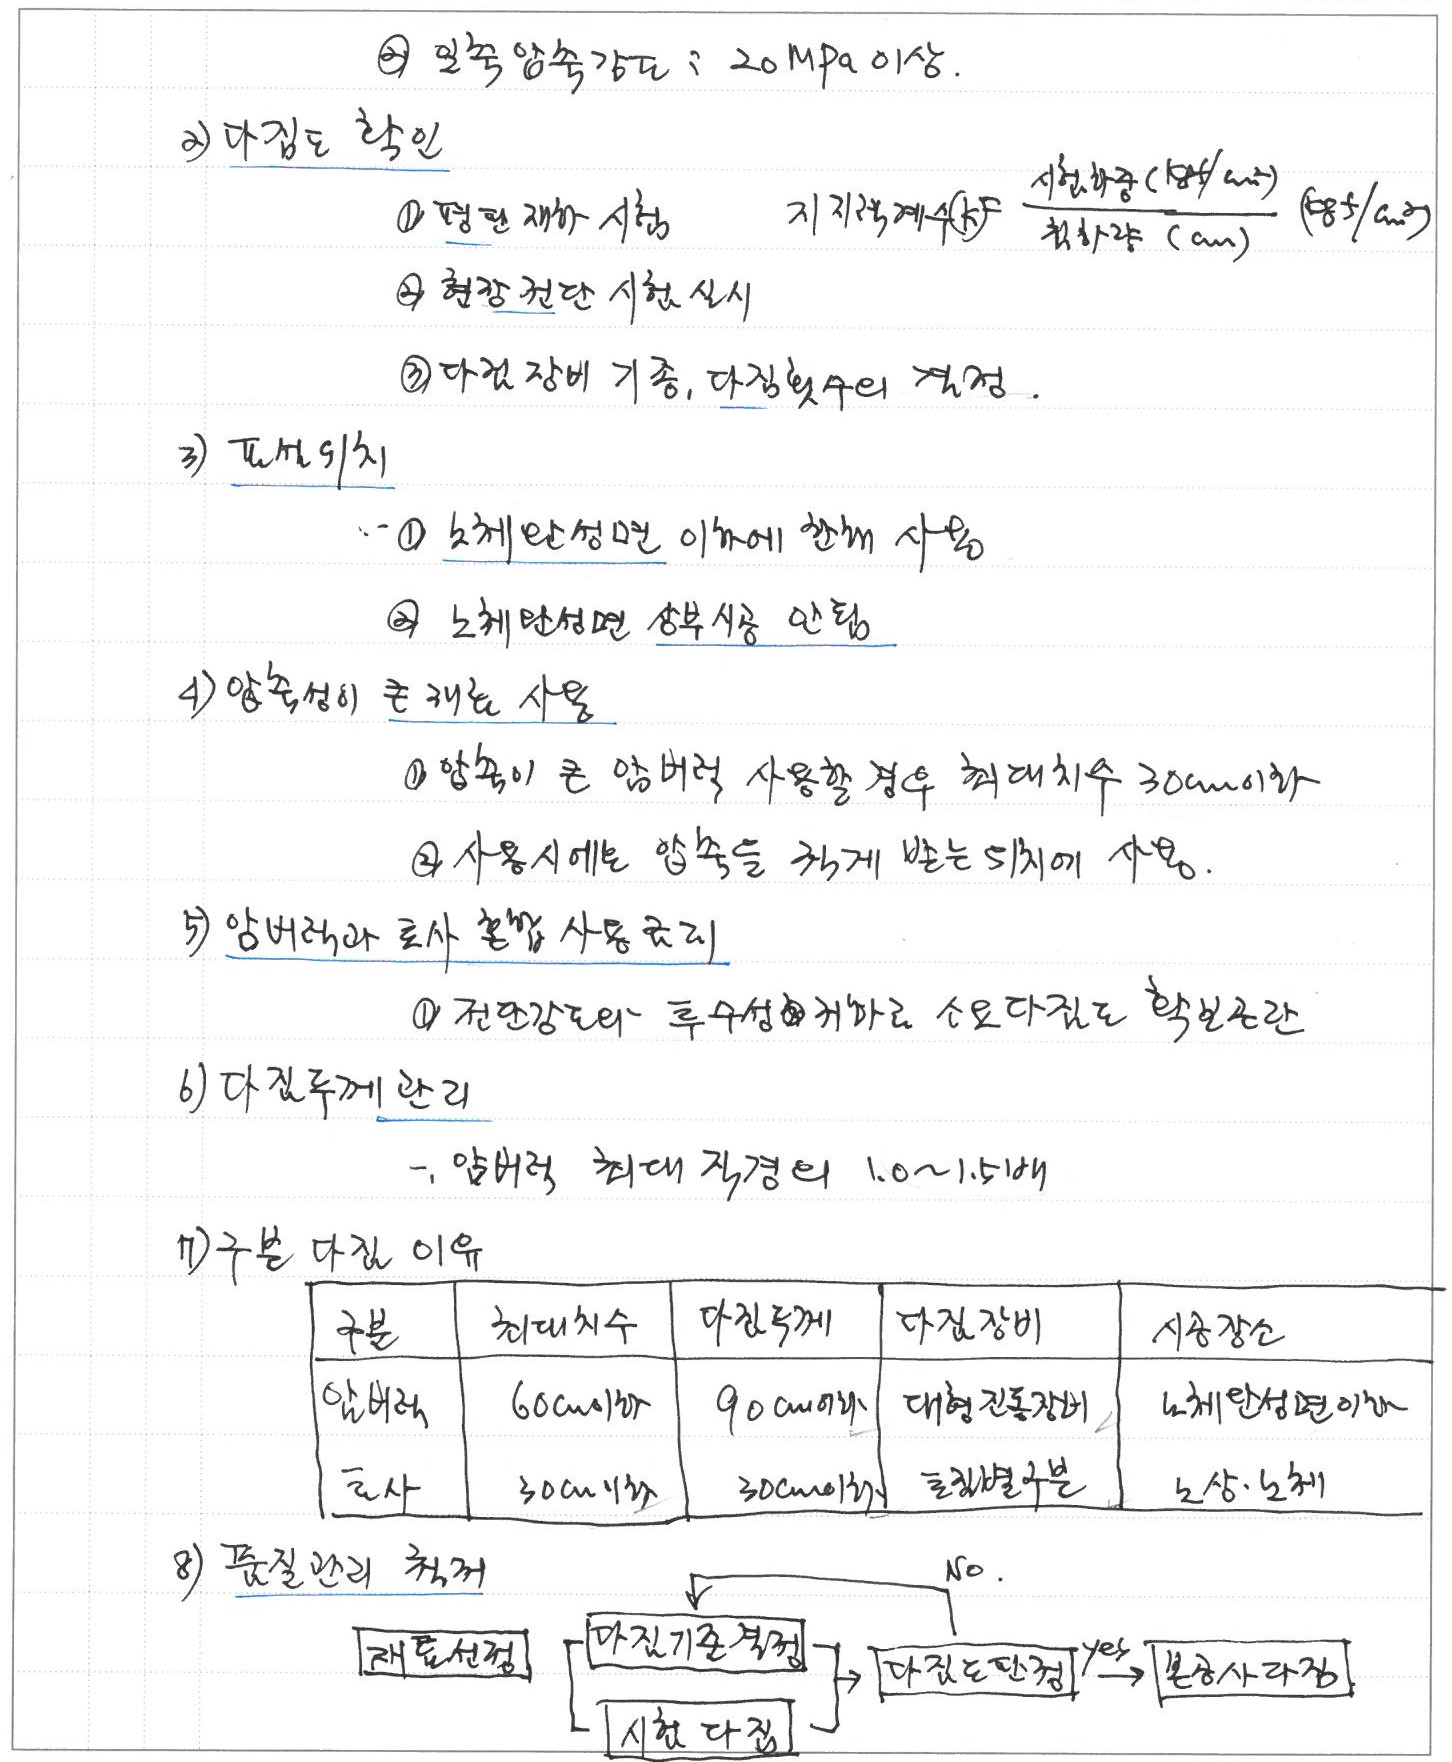 ② 일축압축강도 : 20MPa 이상.
2) 다짐도 확인
① 평판재하 시험 지지력계수(k)= 시험하중(kgf/cm²) / 침하량 (cm) (kgf/cm³)
② 현장전단 시험실시
③ 다짐장비 기종, 다짐횟수의 결정.
3) 포설위치
① 노체완성면 이하에 한해 사용
② 노체완성면 상부시공 안됨
4) 압축성이 큰 재료 사용
① 압축이 큰 암버력 사용할 경우 최대치수 30cm이하
② 사용시에는 압축을 적게 받는 위치에 사용.
5) 암버력과 토사 혼합 사용금지
① 전단강도와 투수성 저하로 소요다짐도 확보곤란
6) 다짐두께 관리
-. 암버력 최대 직경의 1.0~1.5배
7) 구분 다짐 이유
구분 최대치수 다짐두께 다짐장비 시공장소
암버력 60cm이하 90cm이하 대형진동장비 노체완성면이하
토사 30cm이하 30cm이하 토질별구분 노상·노체
8) 품질관리 철저
No.
재료선정 다짐기준결정 다짐도판정 yes 본공사다짐
시험다짐